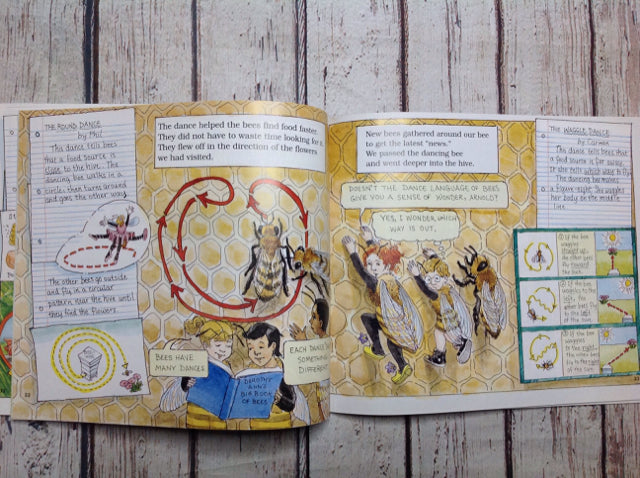 THE ROUND DANCE
by Phil
This dance tells bees
that a food source is
close to the hive. The
dancing bee walks in a
circle, then turns around
and goes the other way.
The other bees go outside
and fly in a circular
pattern near the hive until
they find the flowers.
22
The dance helped the bees find food faster.
They did not have to waste time looking for it.
They flew off in the direction of the flowers
we had visited.
BEES HAVE
MANY DANCES.
EACH DANCE
SOMETHING
DIFFERENT
DOROTHY
ANN'S
BIG BOOK
OF BEES
New bees gathered around our bee
to get the latest "news."
We passed the dancing bee
and went deeper into the hive.
DOESN'T THE DANCE LANGUAGE OF BEES
GIVE YOU A SENSE OF WONDER, ARNOLD?
YES, I WONDER WHICH
WAY IS OUT.
THE WAGGLE DANCE
by Carmen
The dance tells bees that
a food source is far away.
It also tells which way to fly.
The dancing bee makes
a figure eight. She waggles
her body on the middle
line.
① If the
bee
waggles
straight up,
the other
bees fly
toward
the sun.
② If the bee
waggles to the
left, the
other bees fly
to the left
of the sun.
③ If the
bee waggles
to the right,
the other bees
fly to the right
of the sun.